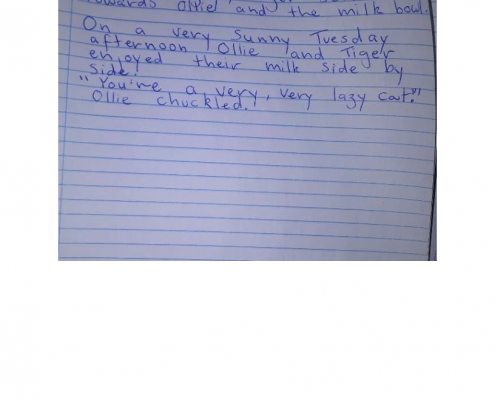 towards Ollie and the milk bowl.
On a very sunny Tuesday
afternoon Ollie and Tiger
enjoyed their milk side by
side.
"You're a very, very lazy cat."
Ollie chuckled.